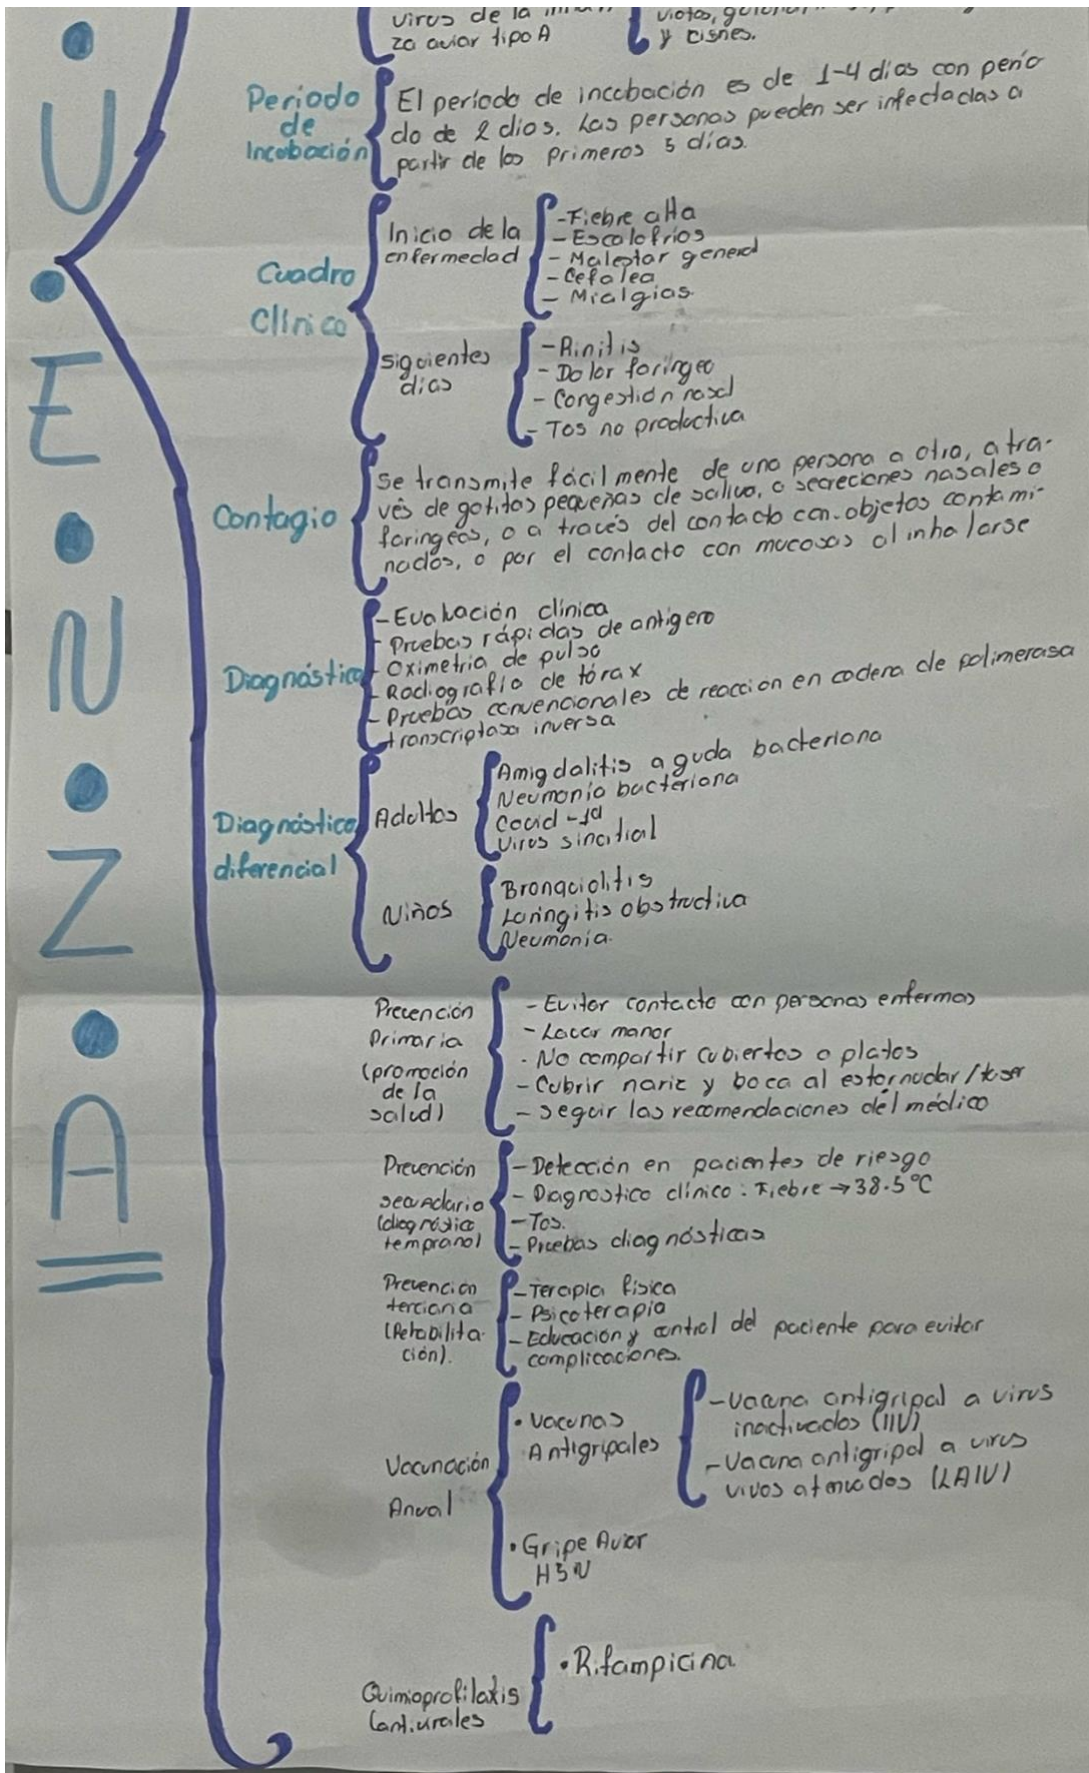 U
E
N
Z
A
virus de la
za aviar tipo A
y cisnes.
Periodo
de
Incubación
El período de incubación es de 1-4 días con perio
do de 2 dios. Las personas pueden ser infectadas a
partir de los primeros 5 días.
Cuadro
Clínico
Inicio de la
enfermedad
-Fiebre alta
-Escalofríos
- Malestar general
-Cefalea
- Mialgias.
siguientes
días
-Rinitis
- Dolor faringeo
- Congestión nasal
- Tos no productiva
Contagio
se transmite fácilmente de una persona a otra, a tra-
vés de gotitas pequeñas de saliva, o secreciones nasales o
faringeas, o a través del contacto con objetos contami-
nados, o por el contacto con mucosas al inhalarse
Diagnóstico
-Evaluación clínica
- Pruebas rápidas de antigero
- Oximetria de pulso
- Radiografía de tórax
- Pruebas convencionales de reaccion en cadena de polimerasa
transcriptasa inversa
Diagnóstico
diferencial
Adultos
Amigdalitis aguda bacteriana
Neumonía bacteriana
Covid -19
Virus sincitial
Niños
Bronquiolitis
Laringitis obstructiva
Neumonía.
Prevención
Primaria
(promoción
de la
salud)
- Evitar contacto con personas enfermas
- Lavar manor
- No compartir cubiertos o platos
- Cubrir nariz y boca al estornudar/toser
- seguir las recomendaciones del médico
Prevención
secundaria
(diagnóstico
temprano)
- Detección en pacientes de riesgo
- Diagnostico clínico: Fiebre → 38.5°C
- Tos.
- Pruebas diagnósticas
Prevencion
terciana
(Rehabilita-
ción).
-Terapia física
- Psicoterapia
- Educación y control del paciente para evitar
complicaciones.
Vacunación
Anual
• Vacunas
Antigripales
-Vacuna antigripal a virus
inactivados (IIV)
-Vacuna antigripal a virus
vivos atenuados (LAIV)
• Gripe Aviar
H5N
Quimioprofilaxis
(antivirales
• Rifampicina